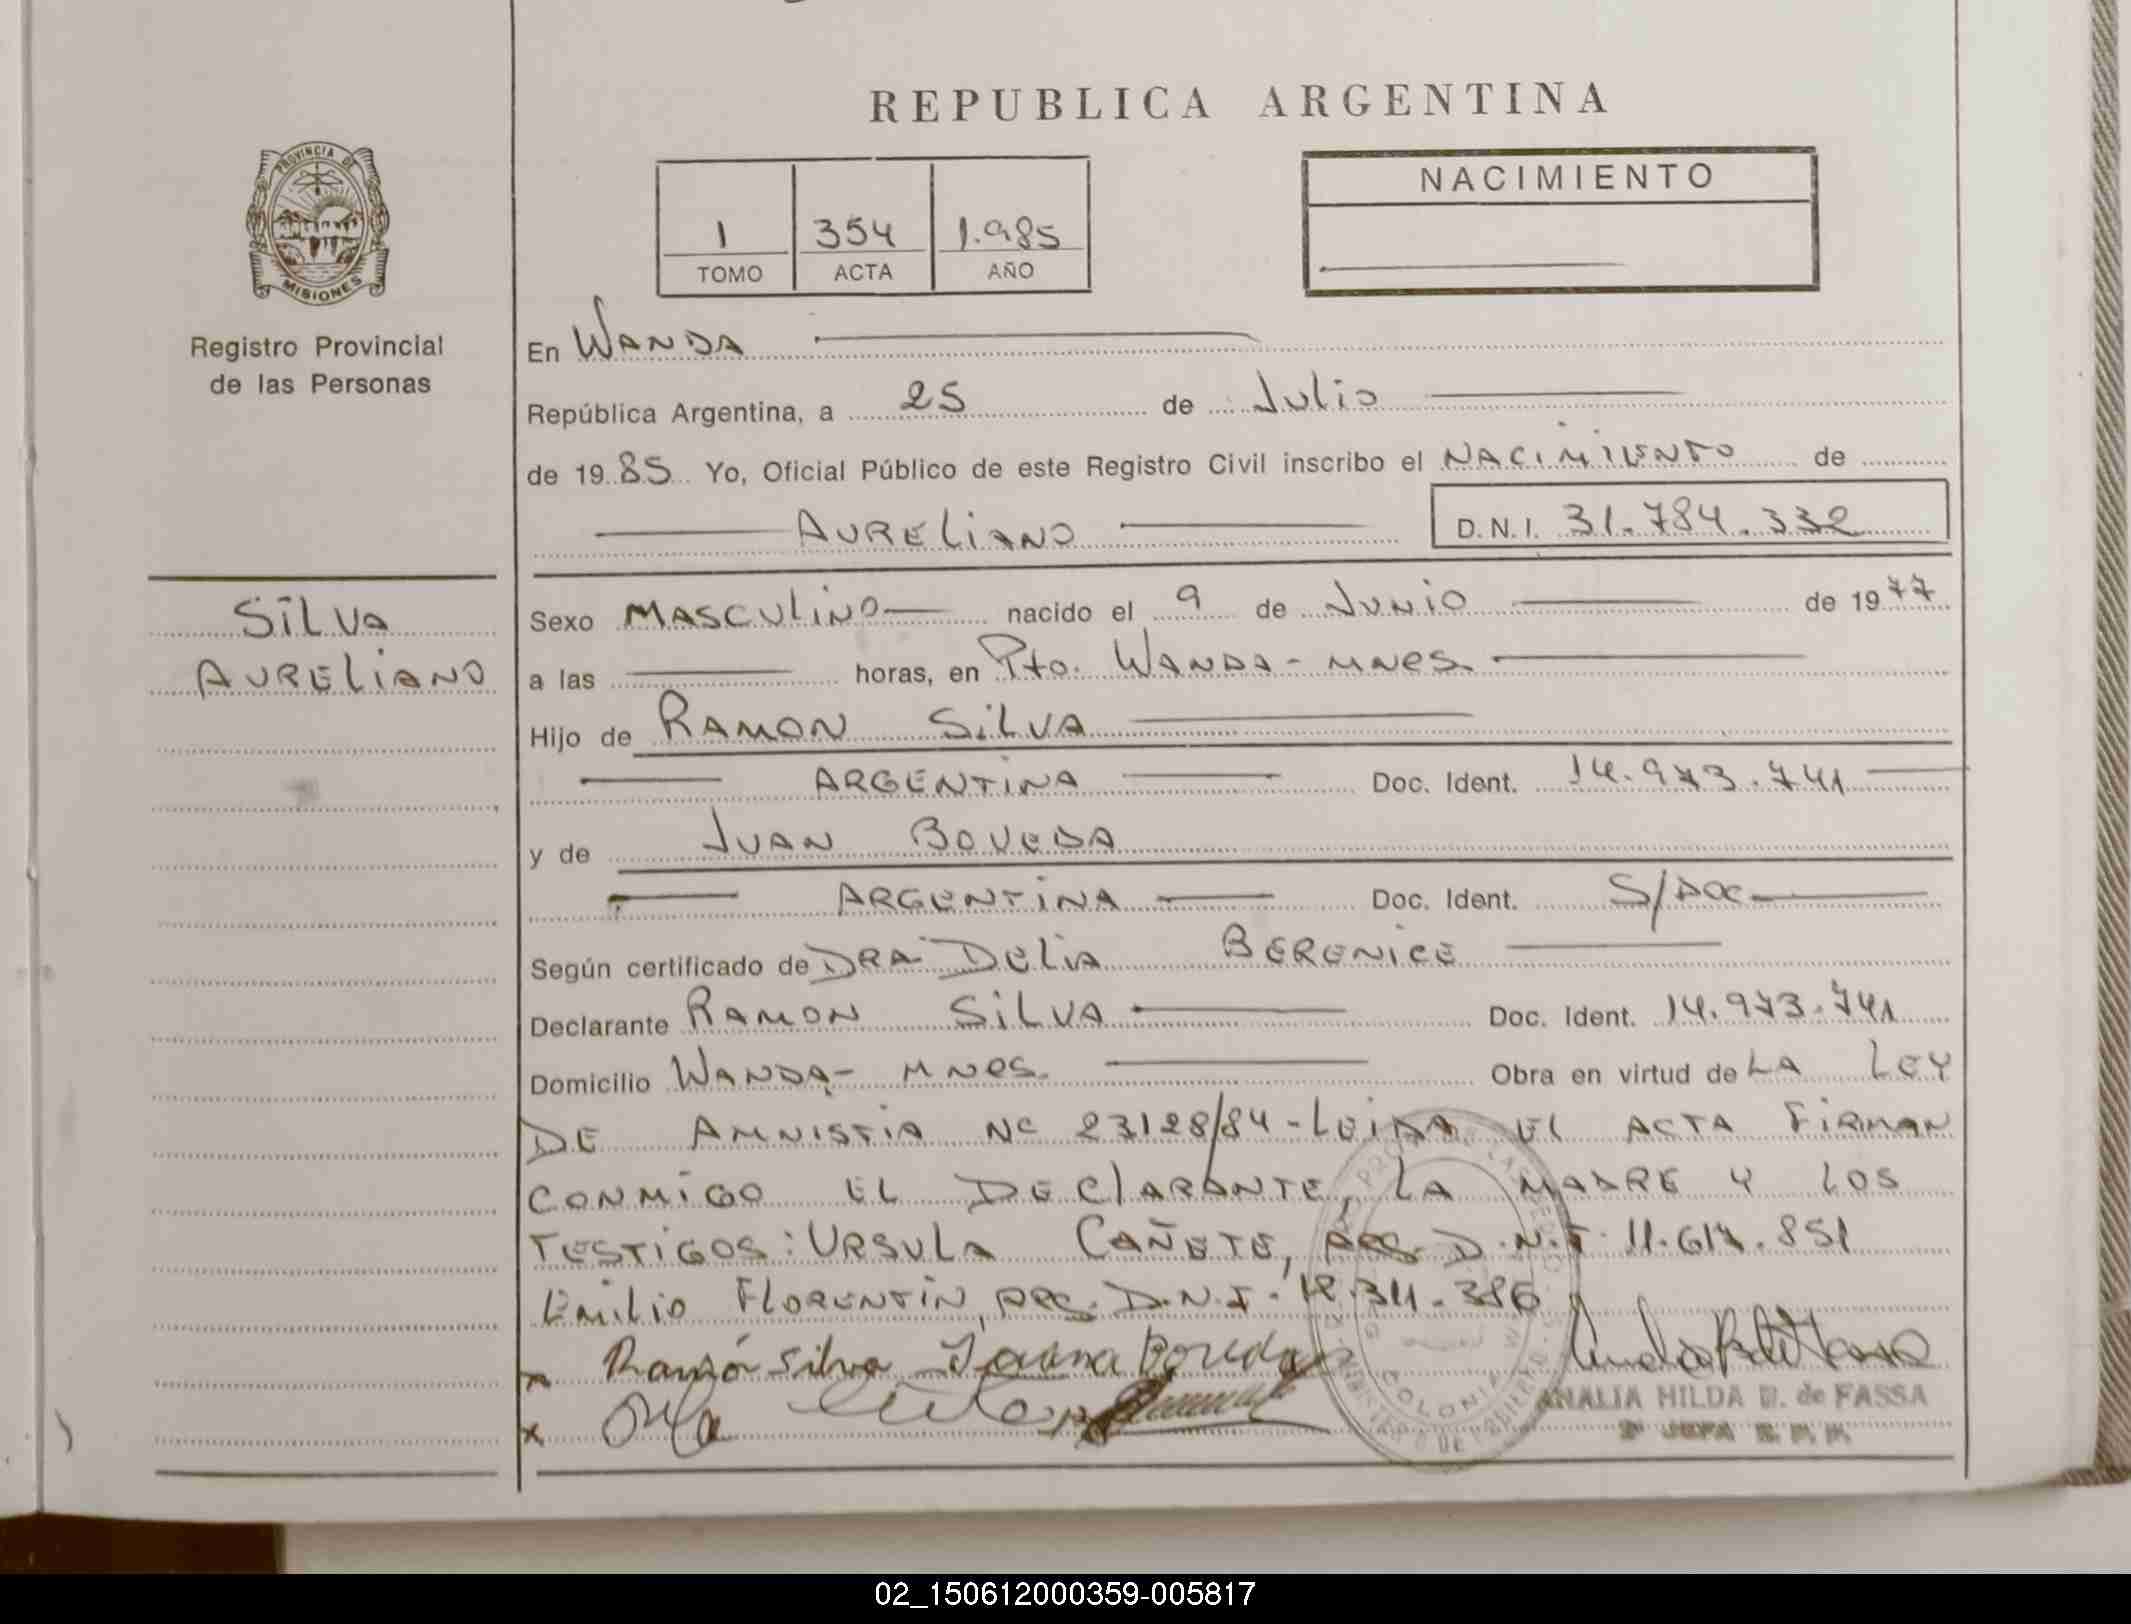 REPUBLICA ARGENTINA
PROVINCIA DE
MISIONES
Registro Provincial
de las Personas
1 354 1.985
TOMO ACTA AÑO
NACIMIENTO
En WANDA
República Argentina, a 25 de Julio
de 1985 Yo, Oficial Público de este Registro Civil inscribo el NACIMIENTO de
AURELIANO D.N.I. 31.784.332
SILVA
AURELIANO
Sexo MASCULINO nacido el 9 de JUNIO de 1977
a las horas, en Pto. WANDA - MNES.
Hijo de RAMON SILVA
ARGENTINA Doc. Ident. 14.973.741
y de JUAN BOVEDA
ARGENTINA Doc. Ident. S/DOC
Según certificado de DRA DELIA BERENICE
Declarante RAMON SILVA Doc. Ident. 14.973.741
Domicilio WANDA - MNES. Obra en virtud de LA LEY
DE AMNISTIA Nº 23128/84 - LEIDA EL ACTA FIRMAN
CONMIGO EL DECLARANTE, LA MADRE Y LOS
TESTIGOS: URSULA CAÑETE, ARG. D.N.I. 11.617.851
EMILIO FLORENTIN, ARG. D.N.I. 12.311.386
x Ramón Silva Juana Boveda
x
ANALIA HILDA de FASSA
COLONIA
02_150612000359-005817